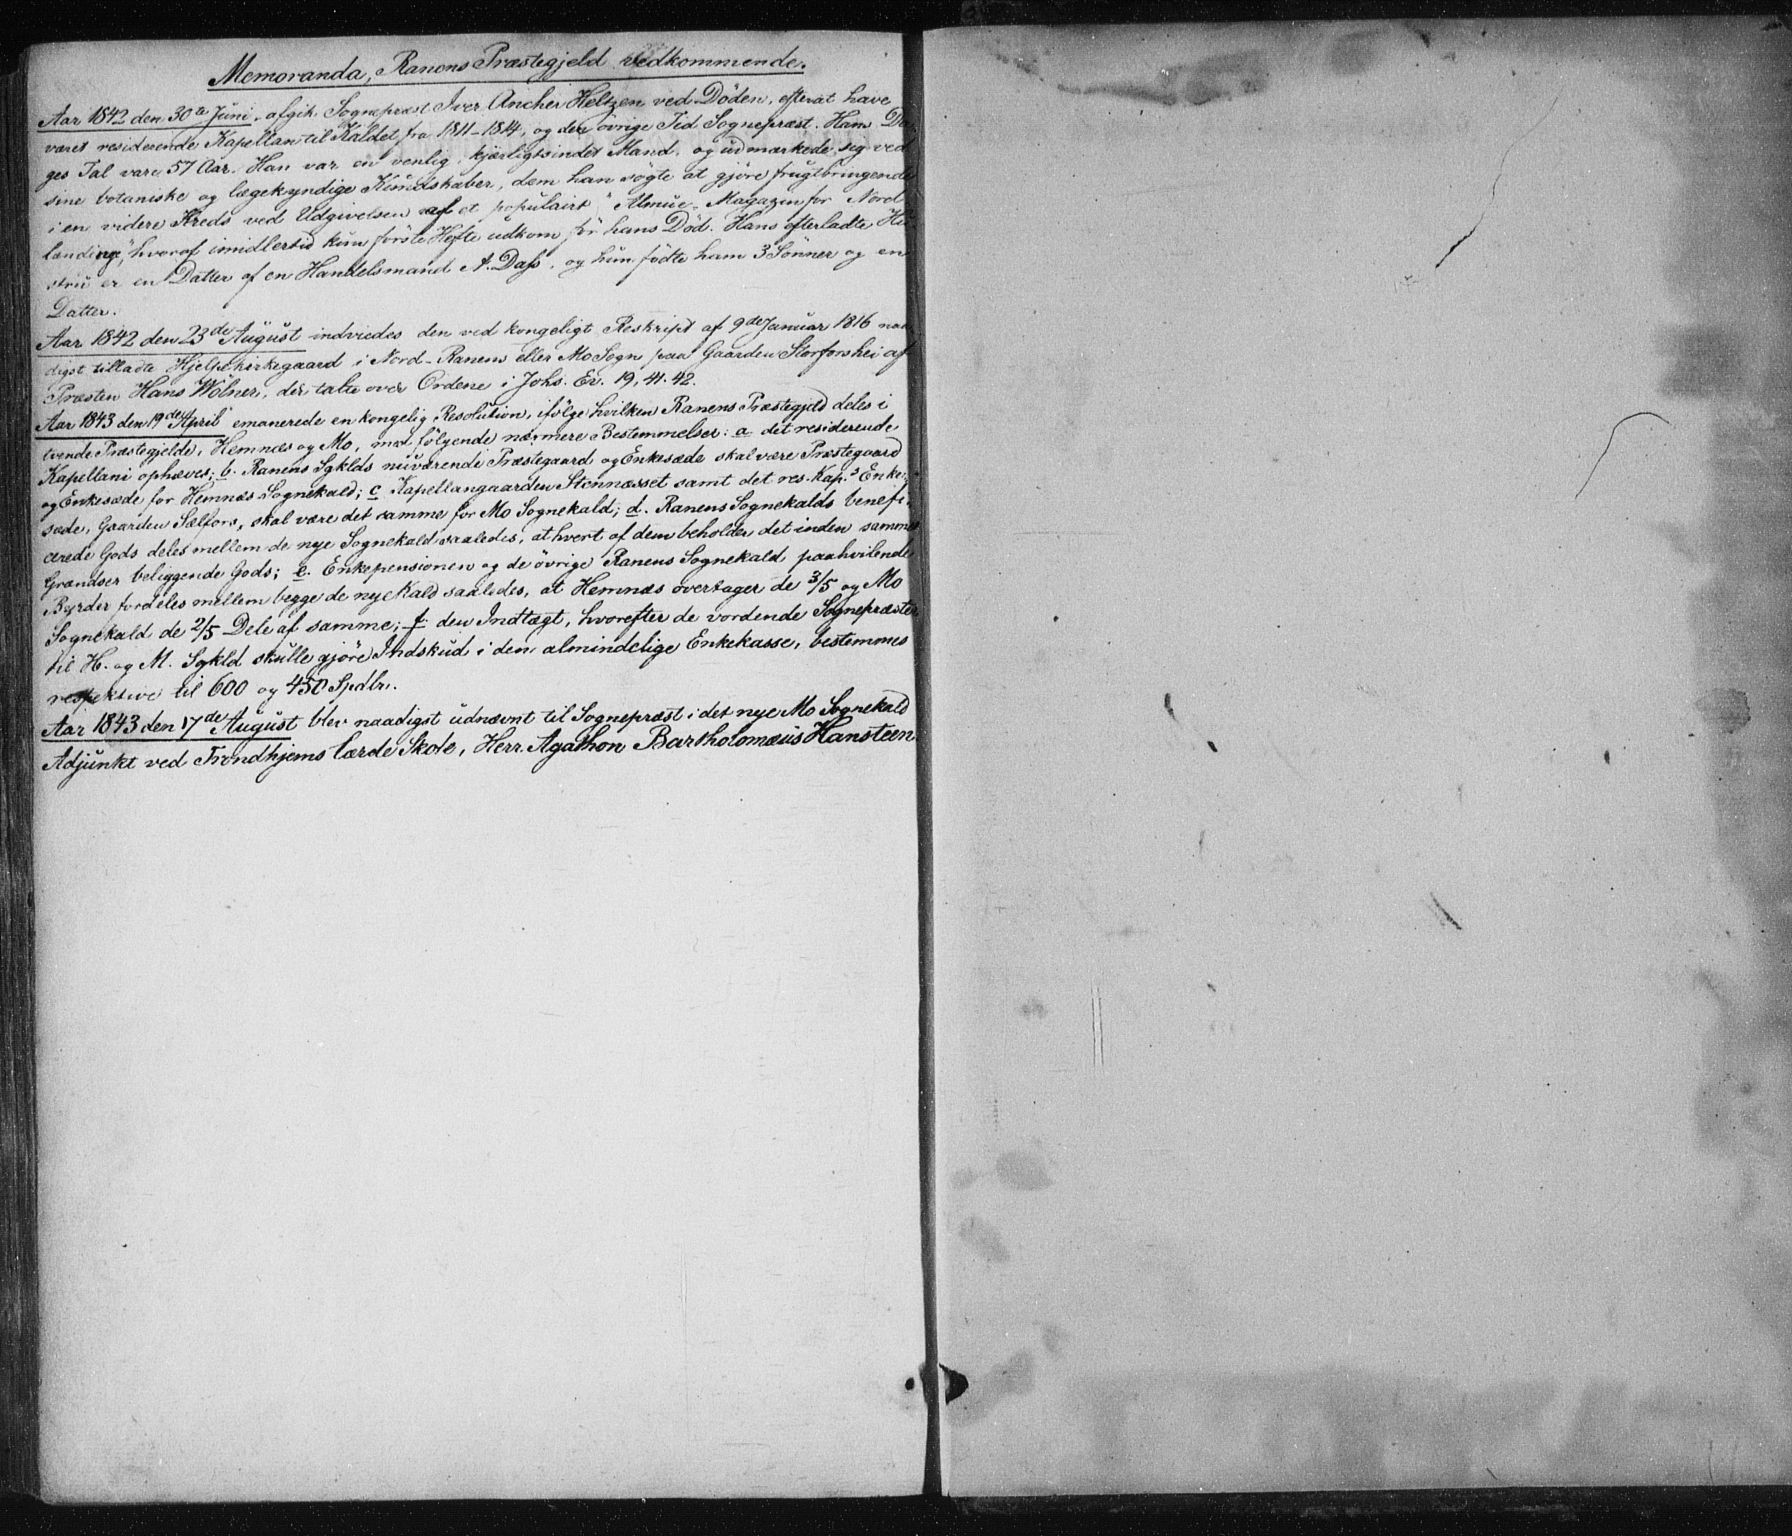 Memoranda, Ranens Præstegjeld vedkommende.
Aar 1842 den 30te Juni, afgik Sognepræst Iver Ancher Heltzen ved Döden, efterat have
været residerende Kapellan til Kaldet fra 1811-1814, og den övrige Tid Sognepræst. Hans Da-
ges Tal vare 57 Aar. Han var en venlig, kjærligsindet Mand, og udmærkede sig ved
sine botaniske og lægekyndige Kundskaber, dem han sögte at gjöre frugtbringende
i en videre Kreds ved Udgivelsen af et populairt "Almue-Magazin for Nord-
lændinge", hvoraf imidlertid kun förste Hefte udkom för hans Död. Hans efterladte Hu-
stru er en Datter af en Handelsmand A. Dass, og hun födte ham 3 Sönner og en
Datter.
Aar 1842 den 23de August indviedes den ved kongeligt Reskript af 9de Januar 1816 naa-
digst tilladte Hjelpekirkegaard i Nord-Ranens eller Mo Sogn paa Gaarden Storforshei af
Præsten Hans Wölner, der talte over Ordene i Johs. Ev. 19, 41. 42.
Aar 1843 den 19de April emanerede en kongelig Resolution, ifölge hvilken Ranens Præstegjeld deles i
tvende Præstegjelde, Hemnæs og Mo, med fölgende nærmere Bestemmelser: a. det residerende
Kapellani ophæves; b. Ranens Sgklds nuværende Præstegaard og Enkesæde skal være Præstegaard
og Enkesæde for Hemnæs Sognekald; c. Kapellangaarden Stennæsset samt det res. Kap.s Enke-
sæde, Gaarden Sælfors, skal være det samme for Mo Sognekald; d. Ranens Sognekalds benefi-
cerede Gods deles mellem de nye Sognekald saaledes, at hvert af dem beholder det inden sammes
Grændser beliggende Gods; e. Enkepensionen og de övrige Ranens Sognekald paahvilende
Byrder fordeles mellem begge de nye Kald saaledes, at Hemnæs overtager de 3/5 og Mo
Sognekald de 2/5 Dele af samme; f. den Indtægt, hvorefter de vordende Sognepræster
til H. og M. Sgkld skulle gjöre Indskud i den almindelige Enkekasse, bestemmes
respektive til 600 og 450 Spdlr.
Aar 1843 den 17de August blev naadigst udnævnt til Sognepræst i det nye Mo Sognekald
Adjunkt ved Trondhjems lærde Skole, Herr Agathon Bartholomæus Hansteen